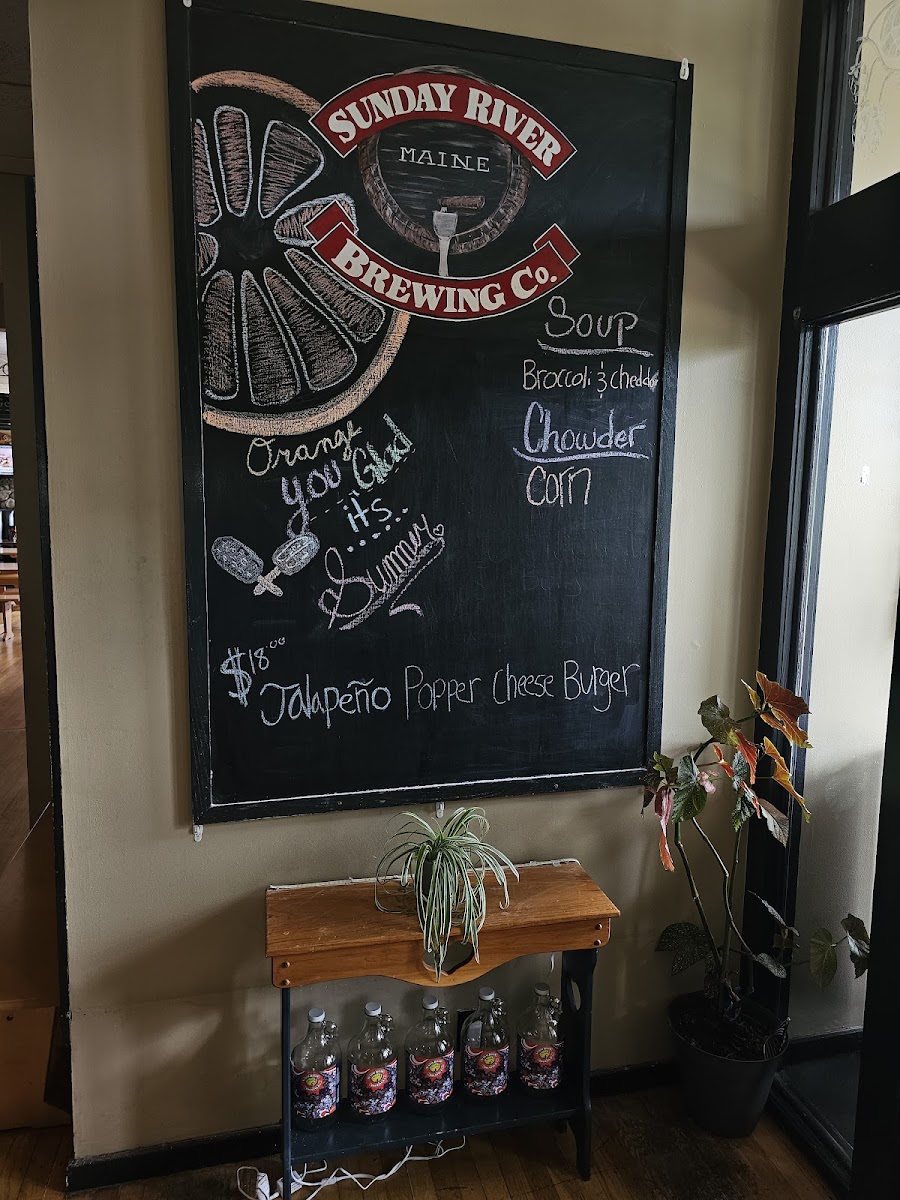 SUNDAY RIVER
MAINE
BREWING CO.
Soup
Broccoli & chedda
Chowder
Corn
Orange
you Glad
its
Summer
$18.00
Jalapeño Popper Cheese Burger